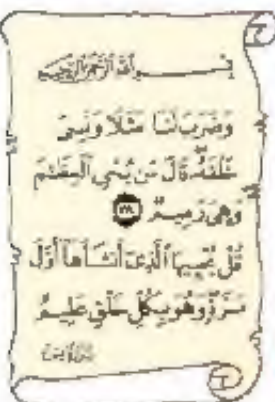 بسم الله الرحمن الرحيم
وَضَرَبَ لَنَا مَثَلًا وَنَسِيَ
خَلْقَهُ قَالَ مَن يُحْيِي الْعِظَٰمَ
وَهِيَ رَمِيمٌ ٧٨
قُلْ يُحْيِيهَا الَّذِي أَنشَأَهَا أَوَّلَ
مَرَّةٍ وَهُوَ بِكُلِّ خَلْقٍ عَلِيمٌ